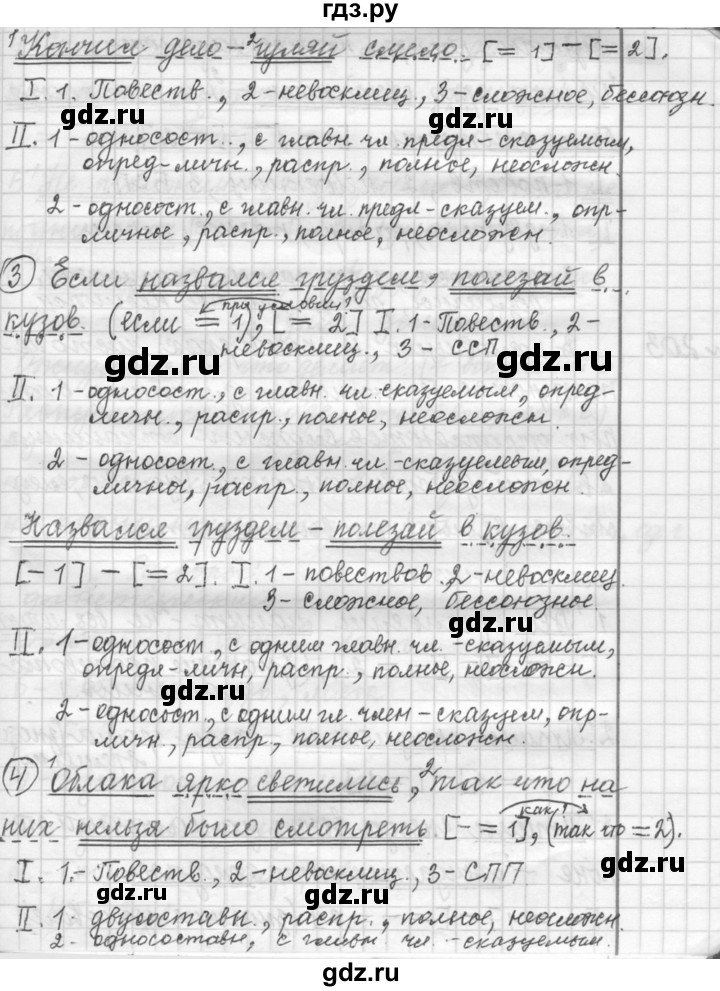 гдз.ру
¹Кончил дело – ²гуляй смело. [= 1] – [= 2].
I. 1. Повеств., 2 - невосклиц., 3 - сложное, бессоюзн.
II. 1 - односост., с главн. чл. предл - сказуемым,
опред - личн., распр., полное, неосложн.
2 - односост., с главн. чл. предл - сказуем., опр-
личное, распр., полное, неосложн.
③ Если назвался груздем, полезай в
при условии?
кузов. (если = 1), [= 2] I. 1 - Повеств., 2 -
невосклиц., 3 - ССП
II. 1 - односост., с главн. чл. сказуемым, опред-
личн., распр., полное, неосложн.
2 - односост., с главн. чл. - сказуемым, опред-
личны, распр., полное, неосложн.
Назвался груздем – полезай в кузов.
[- 1] – [= 2]. I. 1 - повествов. 2 - невосклиц.
3 - сложное, бессоюзное.
II. 1 - односост., с одним главн. чл. - сказуемым,
опредл - личн, распр., полное, неосложн.
2 - односост., с одним гл. член - сказуем, опр-
личн., распр., полное, неосложн.
④ ¹Облака ярко светились, ²так что на
как?
них нельзя было смотреть. [- = 1], (так что = 2).
I. 1. - Повеств., 2 - невосклиц., 3 - СПП
II. 1 - двусоставн., распр., - полное, неосложн.
2 - односоставн, с главн чл. - сказуемым.
gdz.ru
gdz.ru
gdz.ru
gdz.ru
gdz.ru
gdz.ru
gdz.ru
gdz.ru
gdz.ru
gdz.ru
gdz.ru
gdz.ru
gdz.ru